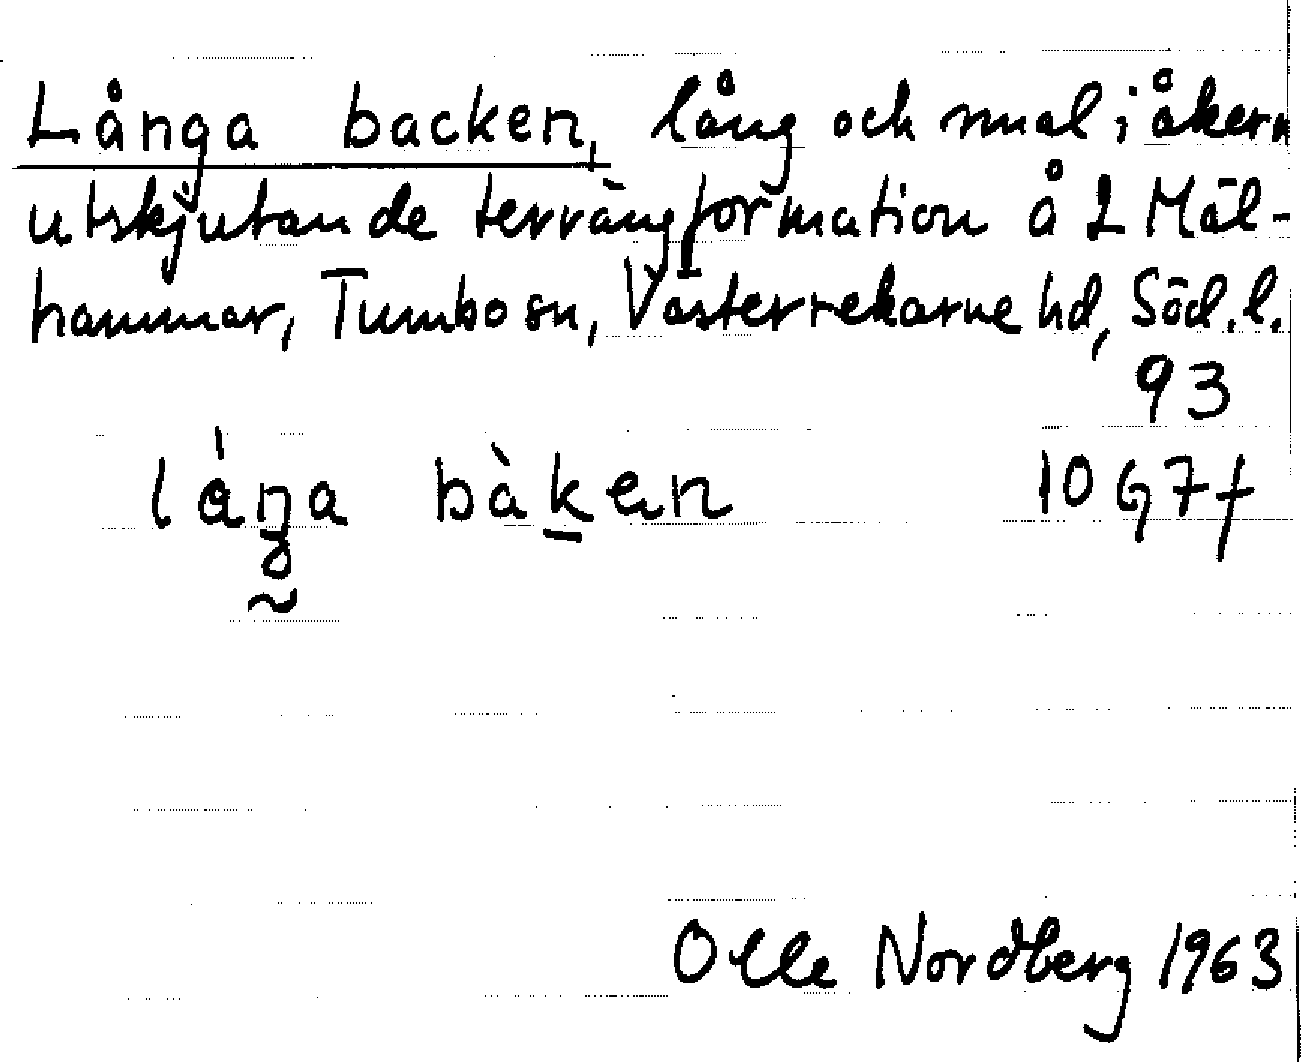 Långa backen, lång och smal i åkern
utskjutande terrängformation å 2 Mäl-
hammar, Tumbo sn, Västerrekarne hd, Söd. l.
93
låŋa bàken 10 G 7 f
Olle Nordberg 1963